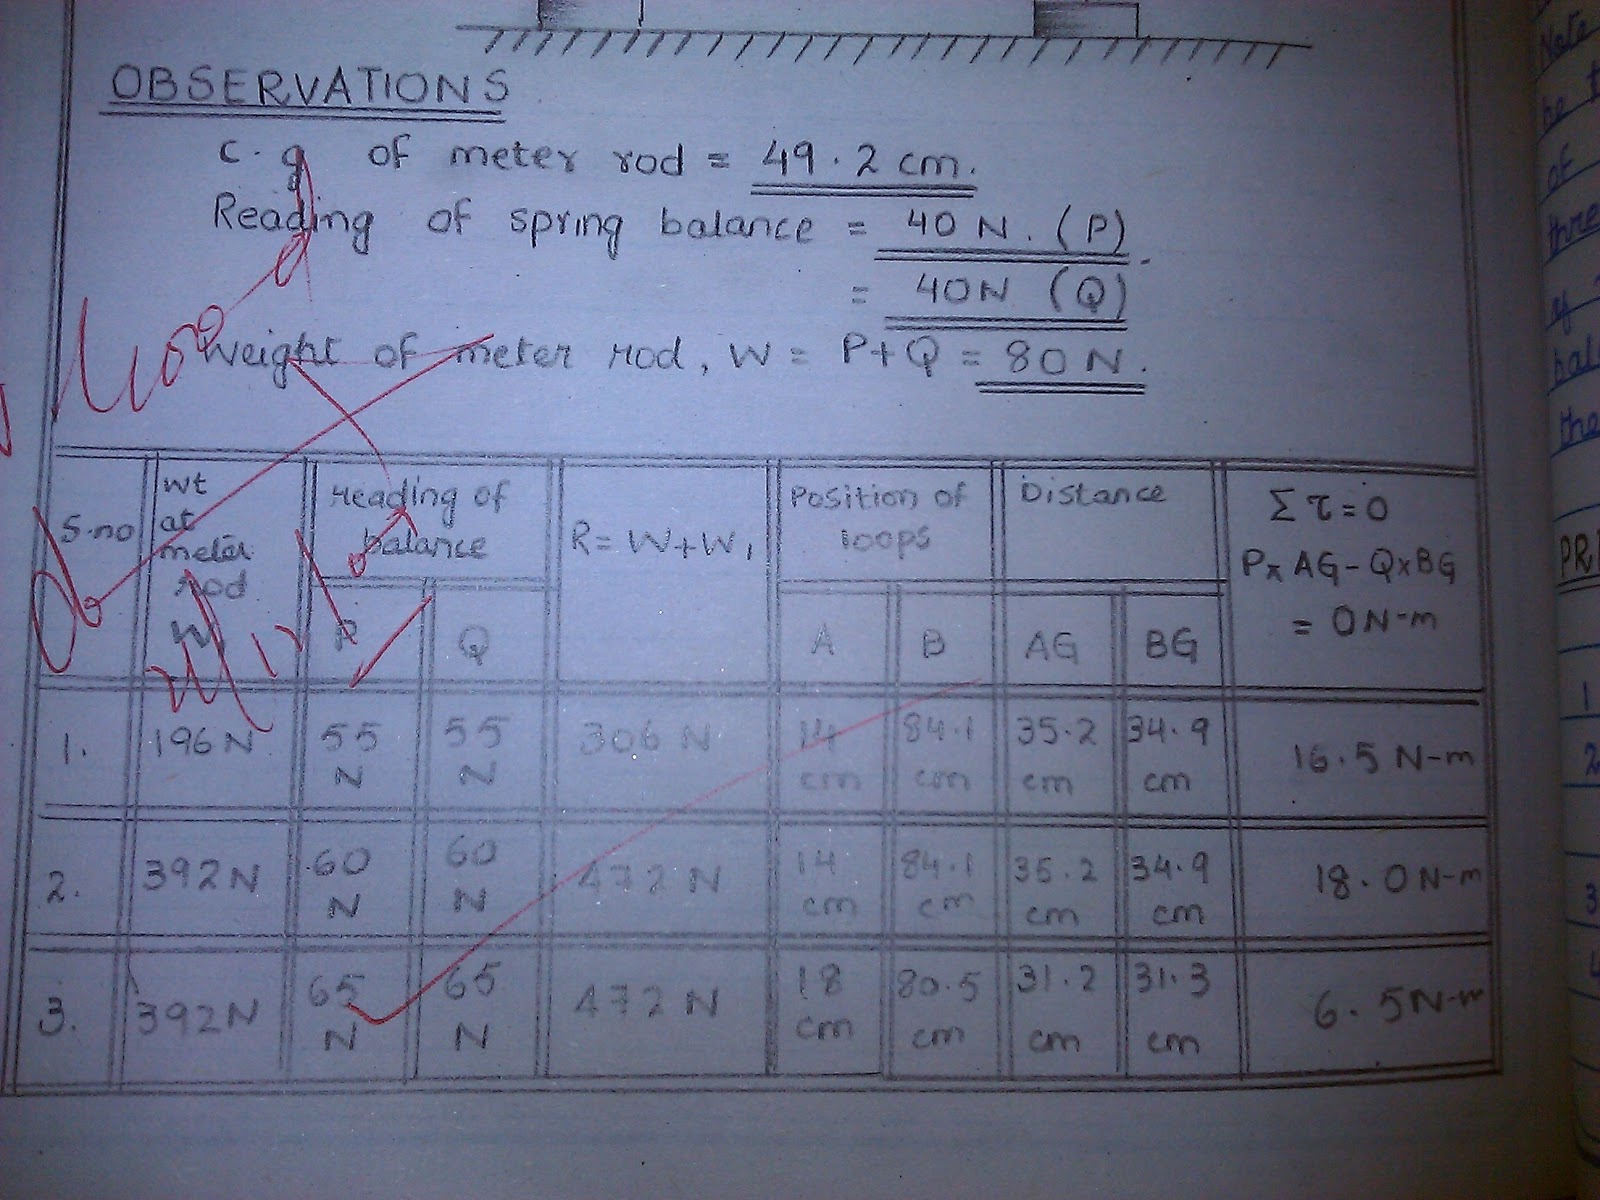 OBSERVATIONS
C.g of meter rod = 49.2 cm.
Reading of spring balance = 40 N. (P)
= 40N (Q)
Weight of meter rod, W = P+Q = 80 N.
S.no | Wt at meter rod W | Reading of balance | R = W+W1 | Position of loops | Distance | Στ=0 P×AG-Q×BG = 0N-m
P | Q | A | B | AG | BG
1. | 196 N | 55 N | 55 N | 306 N | 14 cm | 84.1 cm | 35.2 cm | 34.9 cm | 16.5 N-m
2. | 392 N | 60 N | 60 N | 472 N | 14 cm | 84.1 cm | 35.2 cm | 34.9 cm | 18.0 N-m
3. | 392 N | 65 N | 65 N | 472 N | 18 cm | 80.5 cm | 31.2 cm | 31.3 cm | 6.5 N-m
Good
Note
of
PR
1
2
3
4